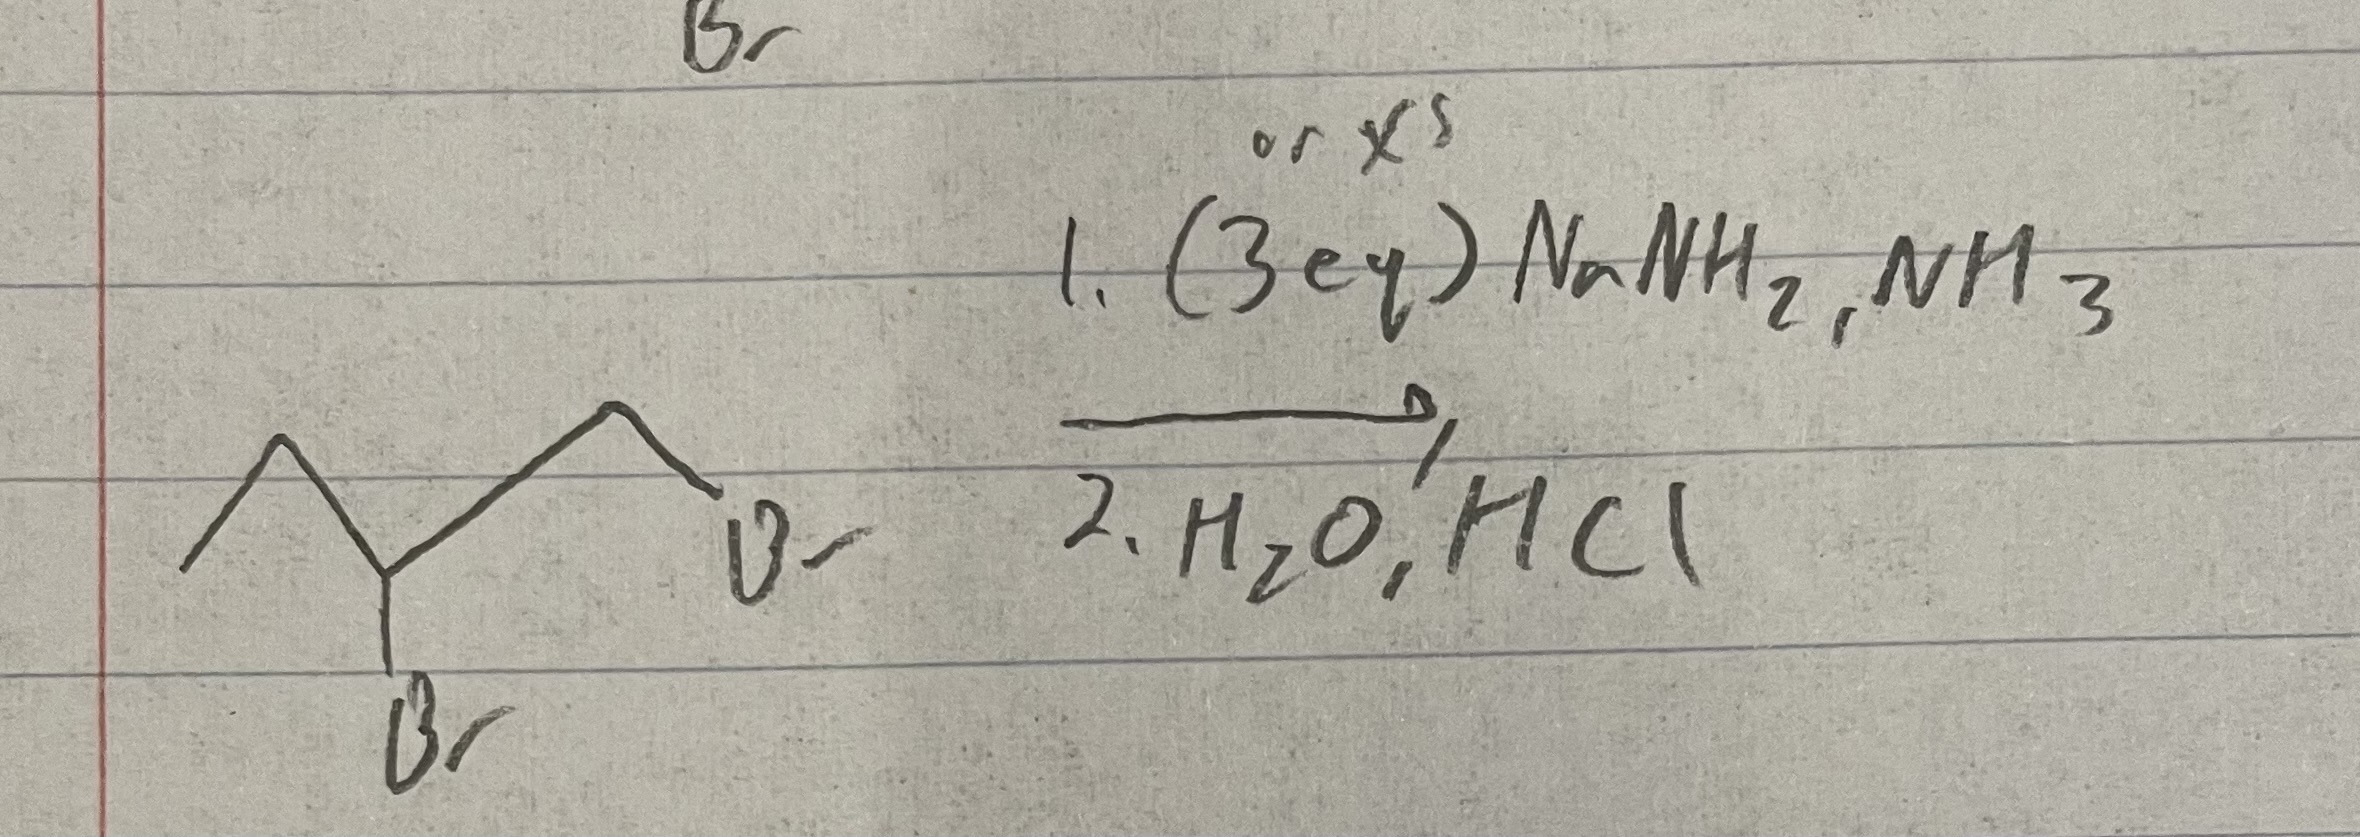 Br
or xs
1. (3eq) NaNH2, NH3
2. H2O, HCl
Br
Br